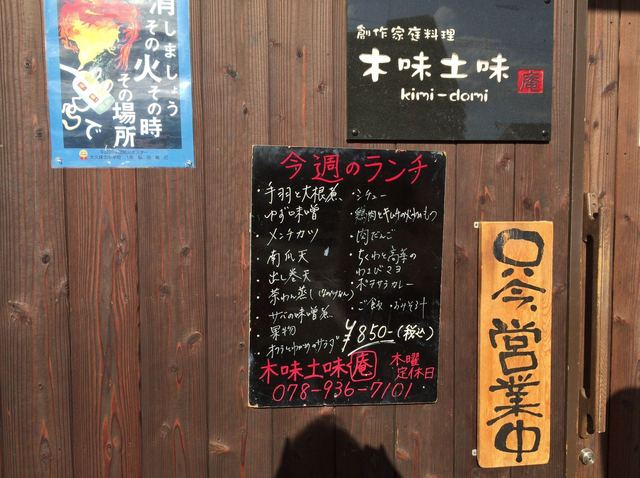 消しましょう
その火その時
その場所で
創作家庭料理
木味土味
庵
kimi-domi
今週のランチ
・手羽と大根煮、
ゆず味噌
・メンチカツ
・南瓜天
出し巻天
・茶わん蒸し
・サバの味噌煮
果物
・オクラとわかめのサラダ
・シチュー
・肉だんご
・ちくわと高菜の
わさびマヨ
・ポテサラカレー
・ご飯
¥850-(税込)
木味土味庵
木曜
定休日
078-936-7101
只今営業中